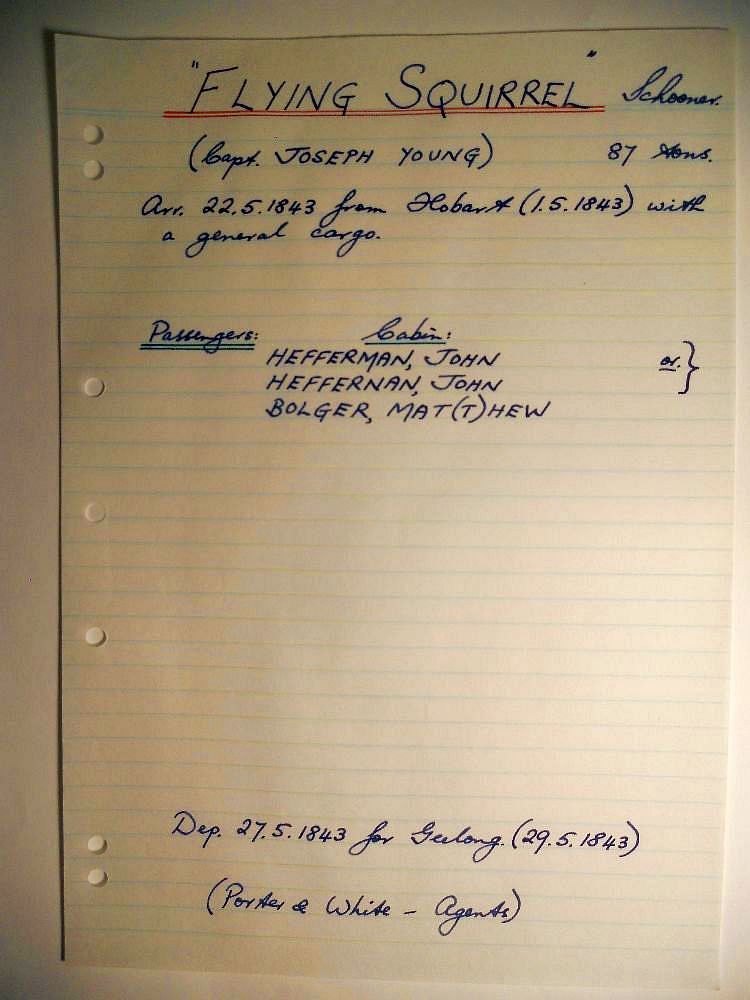 "FLYING SQUIRREL" Schooner.
(Capt. JOSEPH YOUNG) 87 tons.
Arr. 22.5.1843 from Hobart (1.5.1843) with
a general cargo.
Passengers: Cabin:
HEFFERMAN, JOHN or. }
HEFFERNAN, JOHN
BOLGER, MAT(T)HEW
Dep. 27.5.1843 for Geelong. (29.5.1843)
(Porter & White - Agents)